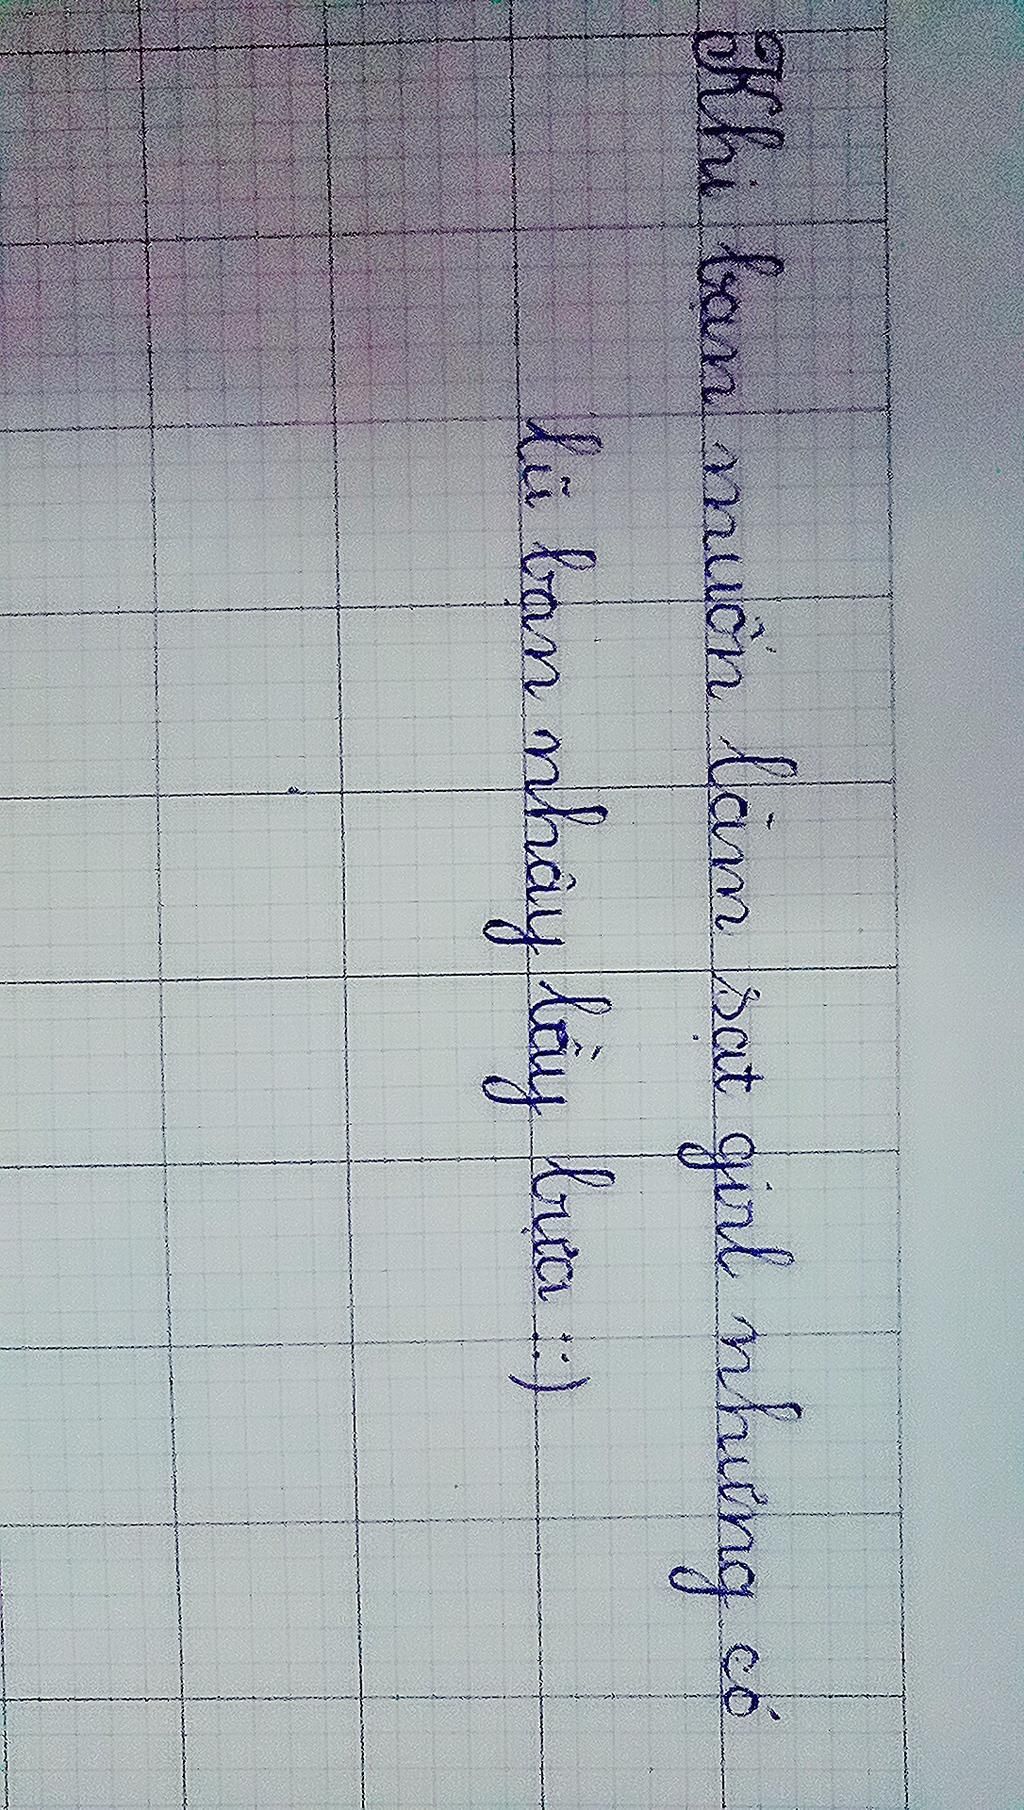 Khi bạn muốn làm sạt girl nhưng có
lũ bạn nhây lầy bựa ::)